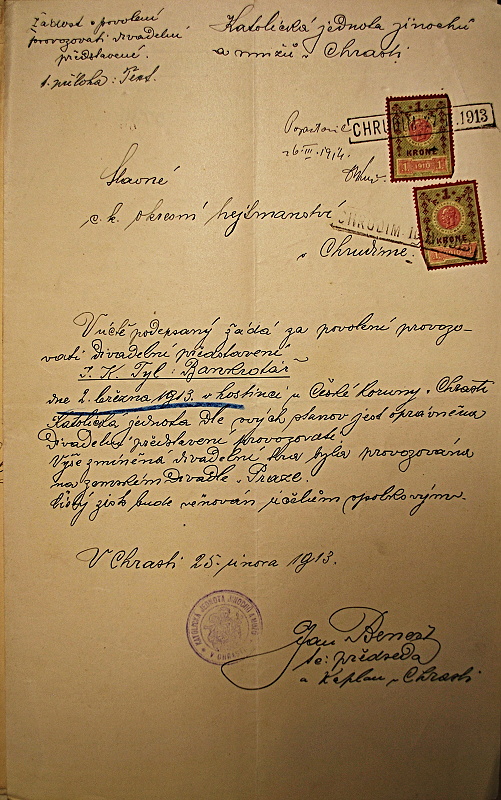 Žádost o povolení
provozovati divadelní
představení.
1 příloha: Text.
Katolická jednota jinochů
a mužů v Chrasti
26/III. 1914.
CHRUDIM 1913
1
KRONE
1 1910 1
CHRUDIM
KRONE
Slavné
c. k. okresní hejtmanství
v Chrudimi.
V úctě podepsaný žádá za povolení provozo-
vati divadelní představení
J. K. Tyl: Bankrotář
dne 2. března 1913. v hostinci u České koruny v Chrasti
Katolická jednota dle svých stanov jest oprávněna
divadelní představení provozovati.
Výše zmíněná divadelní hra byla provozována
na zemském divadle v Praze.
Čistý zisk bude věnován účelům spolkovým.
V Chrasti 25. února 1913.
KATOLICKÁ JEDNOTA JINOCHŮ A MUŽŮ
V CHRASTI
Jan Beneš
předseda
a kaplan v Chrasti